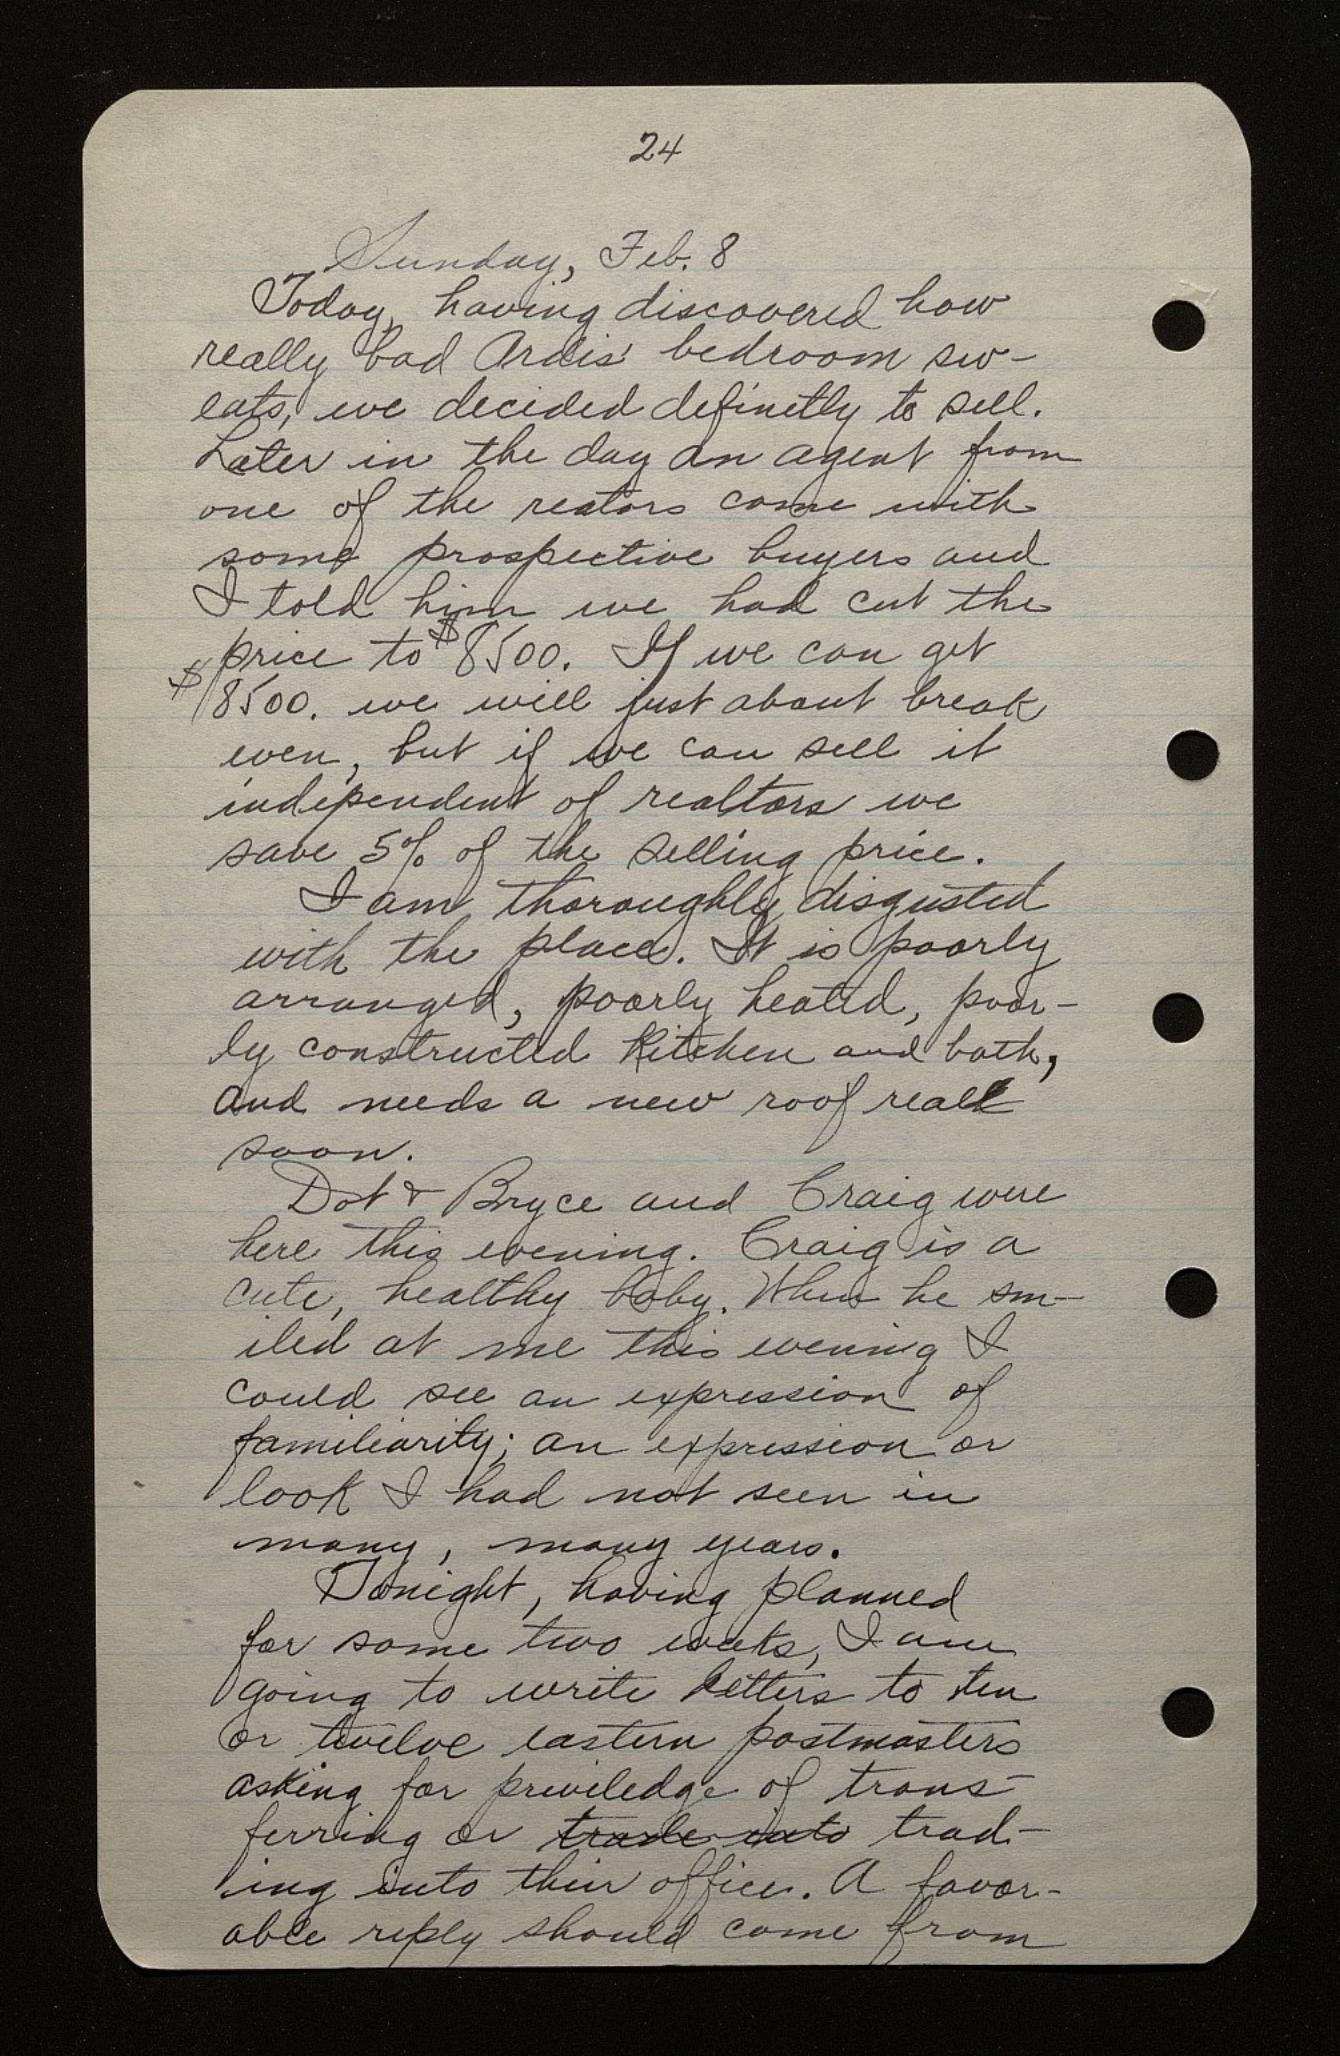 24
Sunday, Feb. 8
Today, having discovered how
really bad Ardis' bedroom sw-
eats, we decided definetly to sell.
Later in the day an agent from
one of the reators came with
some prospective buyers and
I told him we had cut the
price to $8500. If we can get
$8500. we will just about break
even, but if we can sell it
independent of realtors we
save 5% of the selling price.
I am thoroughly disgusted
with the place. It is poorly
arranged, poorly heated, poor-
ly constructed kitchen and bath,
and needs a new roof real
soon.
Dot & Bryce and Craig were
here this evening. Craig is a
cute, healthy baby. When he sm-
iled at me this evening I
could see an expression of
familiarity; an expression or
look I had not seen in
many, many years.
Tonight, having planned
for some two weeks, I am
going to write letters to ten
or twelve eastern postmasters
asking for priviledge of trans-
ferring or trade into trad-
ing into their office. A favor-
able reply should come from